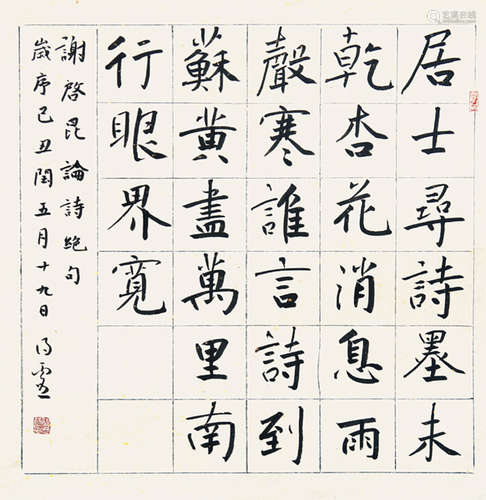 居士尋詩墨未
乾杏花消息雨
聲寒誰言詩到
蘇黄盡萬里南
行眼界寬
謝啓昆論詩絶句
歲序己丑閏五月十九日